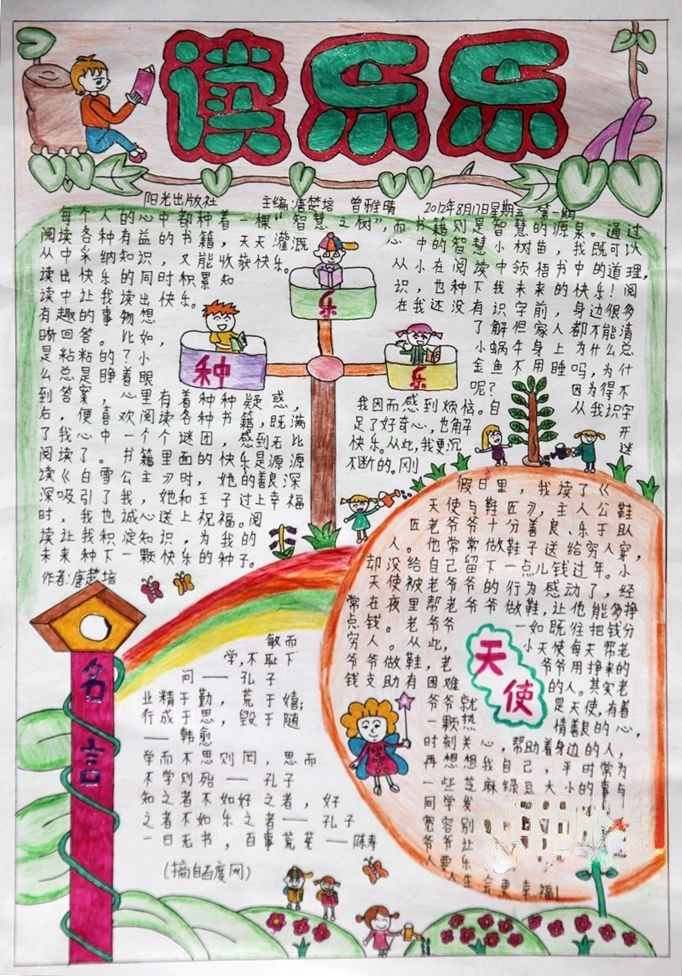 读乐乐
阳光出版社 主编:唐楚培 曾雅晴 2012年8月17日星期五 第一期
每个人的心中都种着一棵"智慧之树",而书籍则是智慧的源泉。通过
阅读各种有益的书籍,天天灌溉心中的智慧小树苗,我既可以
从中采纳知识,又能收获快乐。从小在阅读中领悟书中的道理,
读出快乐的同时积累知识,也种下我未来的快乐!阅
读中让我读出快乐。在我还没有识字前,身边很多
有趣的事物想了解但家人都不能清
晰回答。比如,小蜗牛身上为什么总
是粘粘的?小金鱼不用睡吗,为什
么总是睁着眼呢?因为得不
到答案,心里有着种种疑惑,我因而感到烦恼。自从我识字
后,便喜欢阅读各种书籍,既满足了好奇心,也解开
了我心中一个个谜团,感到无比快乐。从此,我更沉迷
阅读了。书籍里面的快乐是源源不断的,刚
读《白雪公主》时,她的善良深
深吸引了我,她和王子过上幸福
时,我也诚心送上祝福。阅
读让我积淀知识,为我的
未来种下一颗快乐的种子。
作者:唐楚培
乐
种
乐
假日里,我读了《
天使与鞋匠》,主人公鞋
匠老爷爷十分善良、乐于助
人。他常常做鞋子送给穷人穿,
却没给自己留下一点儿钱过年。小
天使被老爷爷的行为感动了,经
常在夜里帮老爷爷做鞋,让他能多挣
点钱。老爷爷一如既往把钱分
穷人。从此,小天使每天帮老
爷爷做鞋,老爷爷用挣来的
钱支助有困难的人。其实老
爷爷就是天使,有着
一颗热情善良的心,
时刻关心,帮助着身边的人,
再想想我自己,平时常为
一些芝麻绿豆大小的事与
同学发
宽容别
爷让
人要乐
人生会更幸福!
天使
名言
敏而
学,不耻下
问——孔子
业精于勤,荒于嬉;
行成于思,毁于随
——韩愈
学而不思则罔,思而
不学则殆——孔子
知之者不如好之者,好
之者不如乐之者——孔子
一日无书,百事荒芜——陈寿
(摘自百度网)